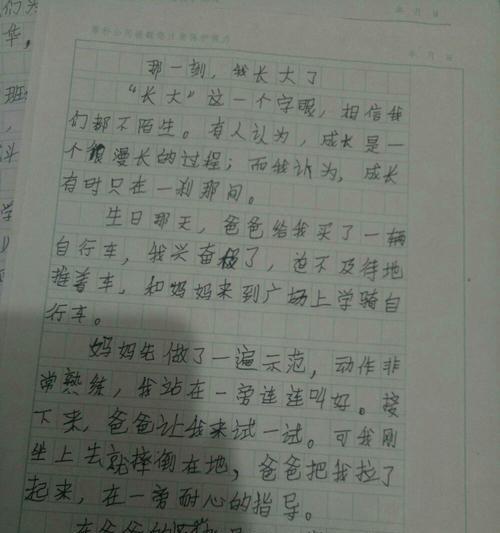 那一刻，我长大了
“长大”这一个字眼，相信我
们都不陌生。有人认为，成长是一
个很漫长的过程；而我认为，成长
有时只在一刹那间。
生日那天，爸爸给我买了一辆
自行车，我兴奋极了，迫不及待地
推着车，和妈妈来到广场上学骑自
行车。
妈妈先做了一遍示范，动作非
常熟练，我站在一旁连连叫好。接
下来，爸爸让我来试一试。可我刚
坐上去就摔倒在地，爸爸把我拉了
起来，在一旁耐心的指导。
在爸爸的
年 月 日
年 月 日
们
华，
班
头
学